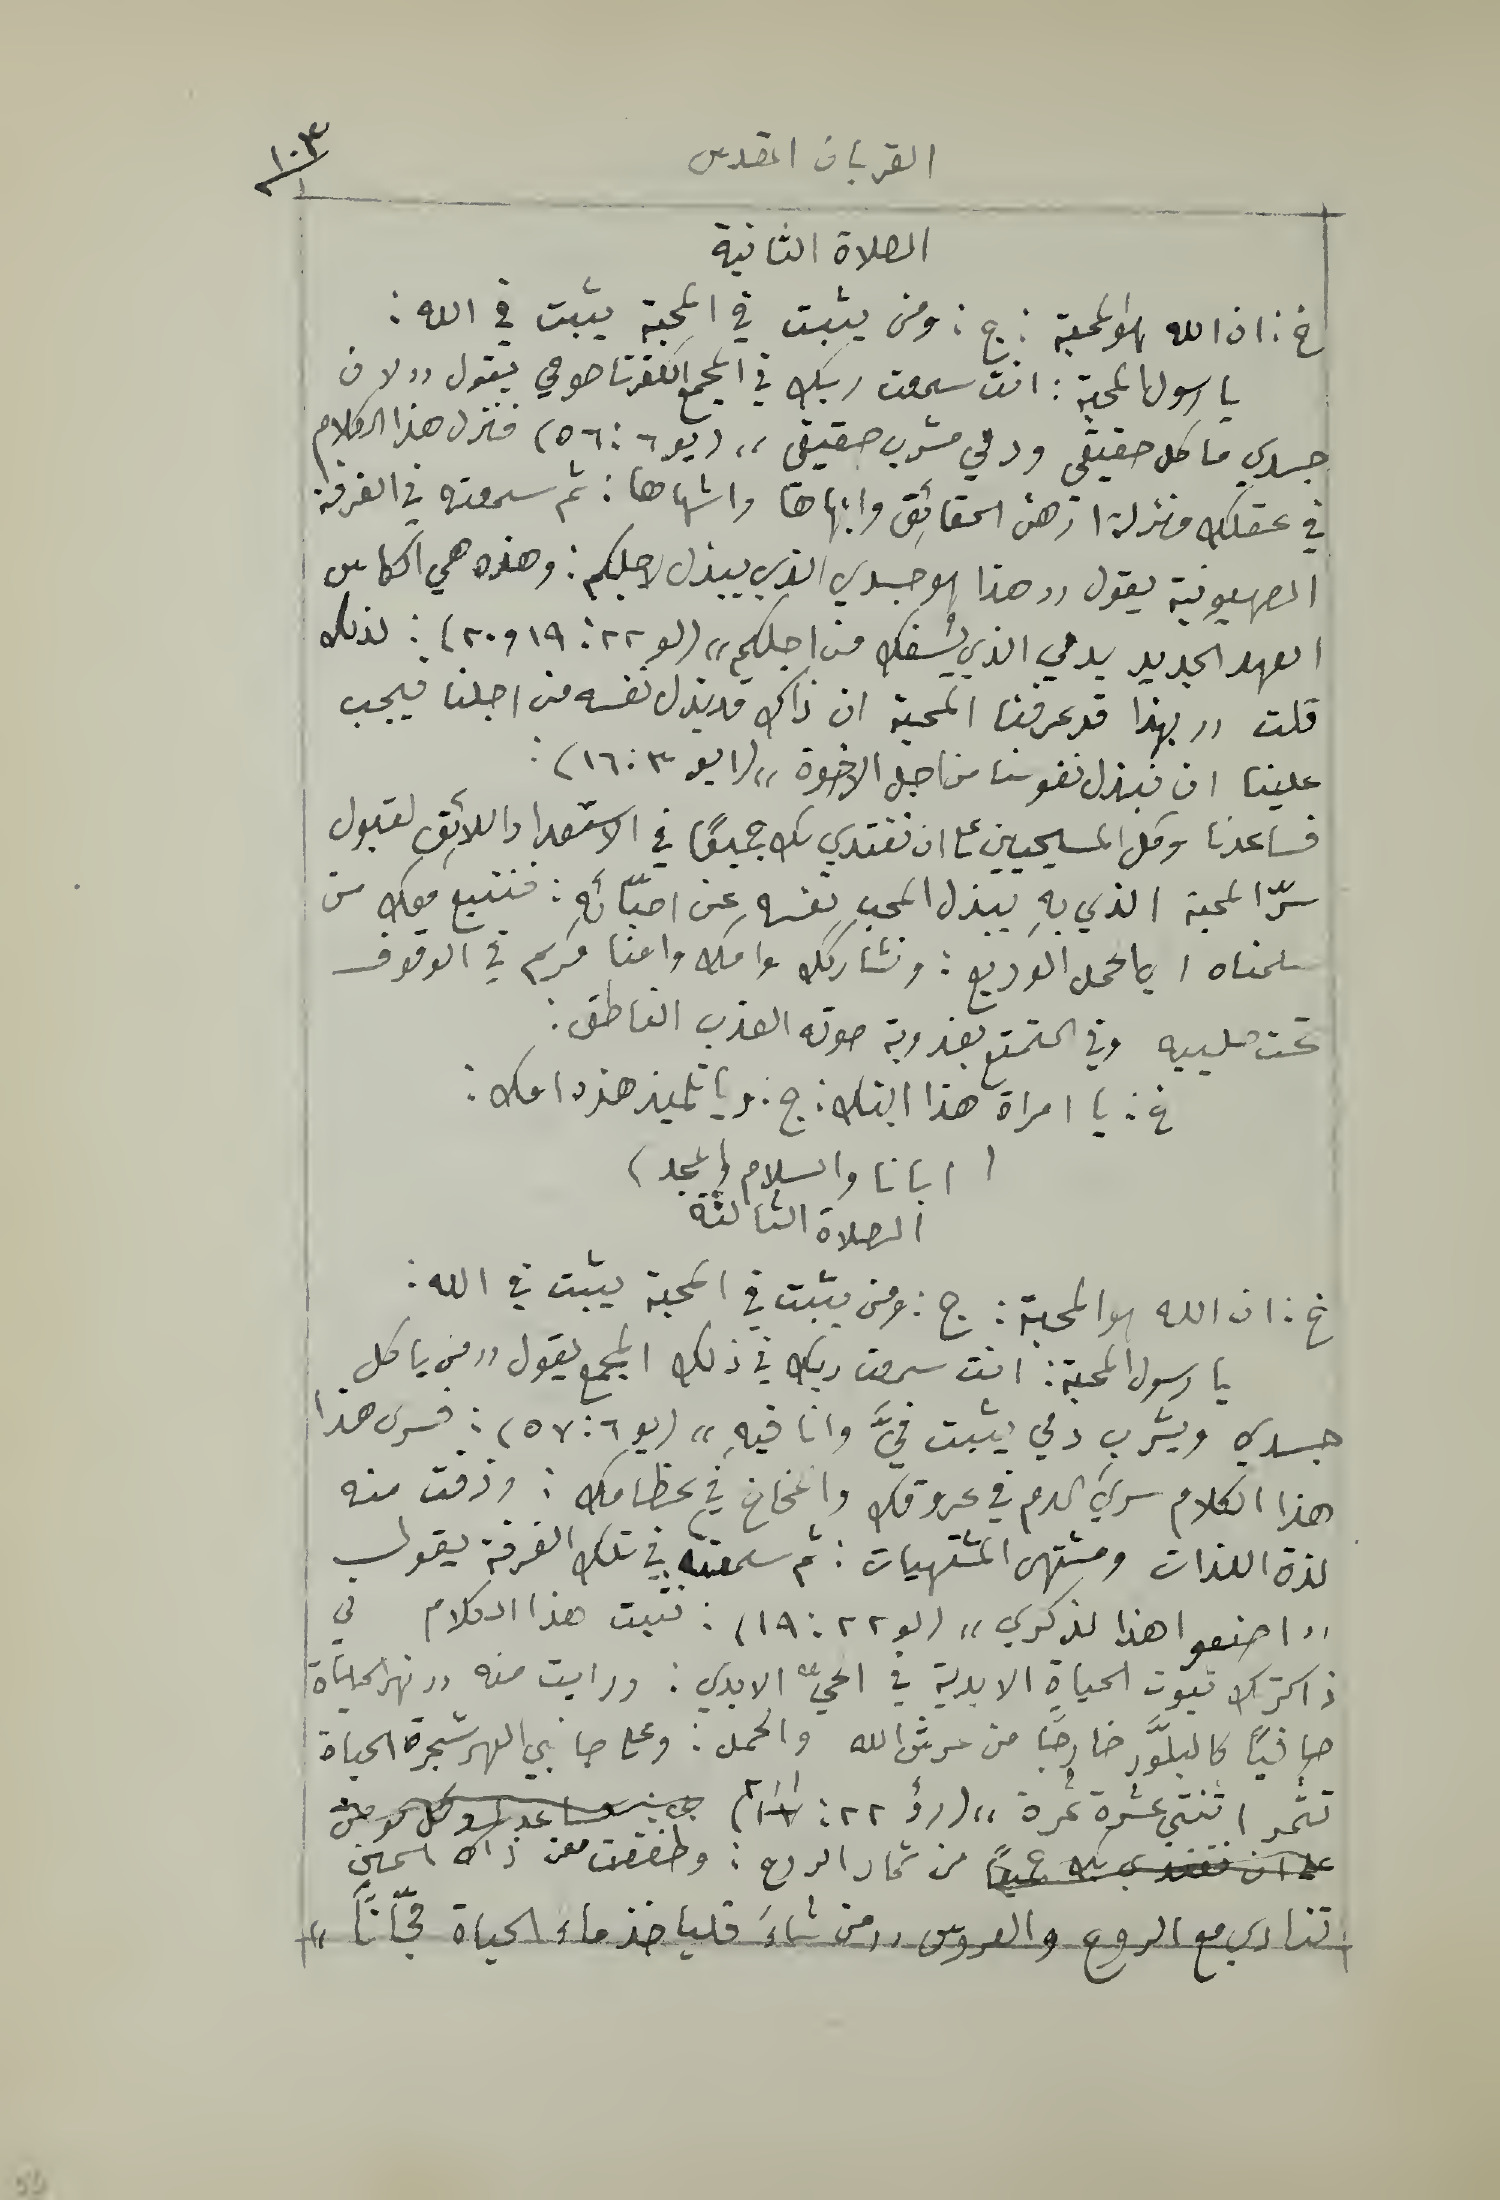 القربان المقدس
١٠٣
الصلاة الثانية
خ : ان الله هو المحبة : ج : ومن يثبت في المحبة يثبت في الله :
يا رسول المحبة : انت سمعت ربك في المجمع الكفرناحومي يقول «لان
جسدي مأكل حقيقي ودمي مشرب حقيقي» (يو ٦ : ٥٦) فنزل هذا الكلام
في عقلك منزلة ازهى الحقائق وابهاها واشهاها : ثم سمعته في الغرفة
الصهيونية يقول «هذا هو جسدي الذي يبذل لاجلكم : وهذه هي الكاس
العهد الجديد بدمي الذي يُسفك من اجلكم» (لو ٢٢ : ١٩ و ٢٠) : لذلك
قلت «بهذا قد عرفنا المحبة ان ذاك قد بذل نفسه من اجلنا فيجب
علينا ان نبذل نفوسنا من اجل الاخوة» (١ يو ٣ : ١٦) :
فساعدنا وكل المسيحيين على ان نقتدي بك جميعًا في الاستعداد اللائق لقبول
سرّ المحبة الذي بهِ يبذل المحب نفسه عن احبّائهِ : فنتبع معك من
سلمناه ايا الحمل الوديع : ونشاركك وامك وامنا مريم في الوقوف
تحت صليبه وفي التمتع بعذوبة صوته العذب الناطق :
خ : يا امراة هذا ابنك : ج : ويا تلميذ هذه امك :
( ابانا والسلام والمجد )
الصلاة الثالثة
خ : ان الله هو المحبة : ج : ومن يثبت في المحبة يثبت في الله :
يا رسول المحبة : انت سمعت ربك في ذلك المجمع يقول «من ياكل
جسدي ويشرب دمي يثبت فيَّ وانا فيهِ» (يو ٦ : ٥٧) : فسرى هذا
هذا الكلام سريَ الدم في عروقك والمخاخ في عظامك : وذقت منه
لذة اللذات ومشتهى المشتهيات : ثم سمعته في تلك الغرفة يقول
«اصنعوا هذا لذكري» (لو ٢٢ : ١٩) : فثبت هذا الكلام في
ذاكرتك ثبوت الحياة الابدية في الحيّ الابدي : ورايت منه «نهر الحياة
صافيًا كالبلَّور خارجًا من عرش الله والحمل : وعلى جانبي النهر شجرة الحياة
تثمر اثنتي عشرة ثمرة» (رؤ ٢٢ : ١ و ٢) ساعدنا وكل
على ان نقتدي بك جميعًا من ثمار الروح : وطفقت من ذاك الحين
تنادي مع الروح والعروس «من شاءَ فلياخذ ماء الحياة مجّانًا»